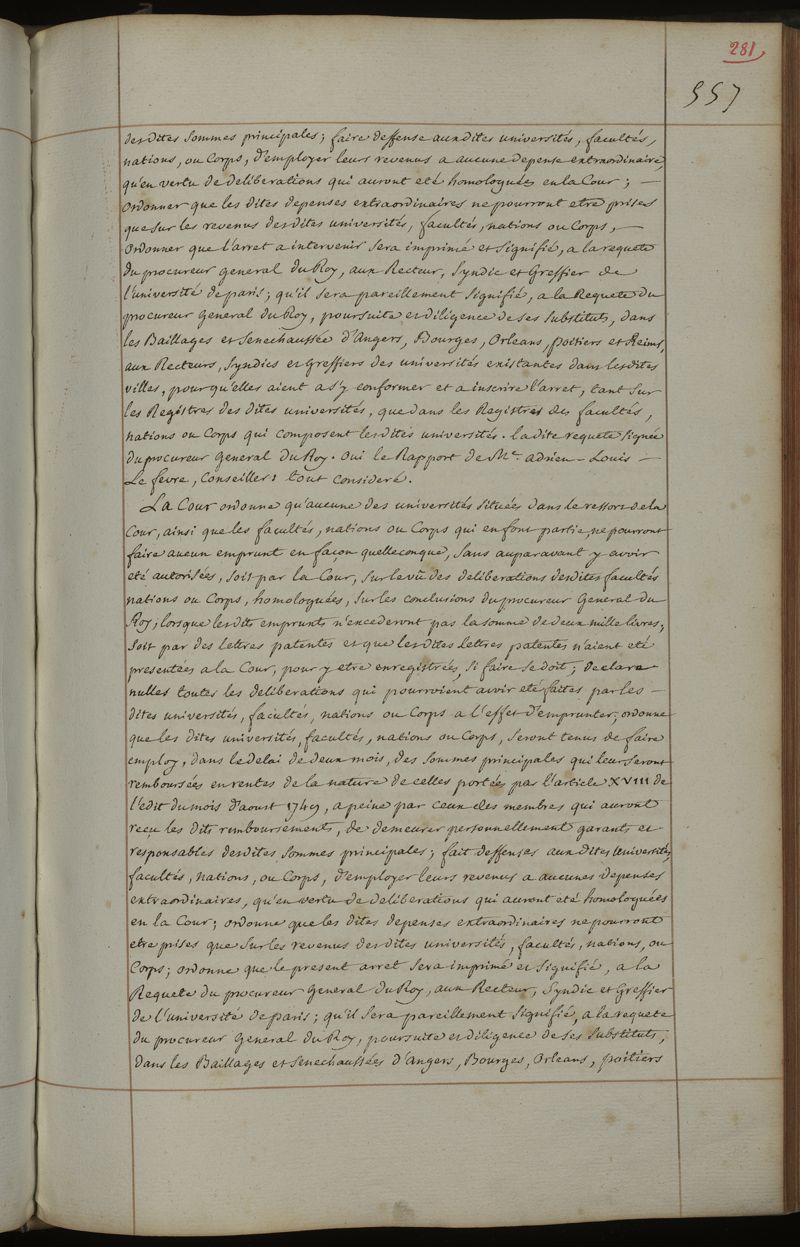 281
557
desdites Sommes principales; faire deffense auxdites universités, facultés,
nations, ou Corps, d'employer leurs revenus a aucune depense extraordinaire,
qu'en vertu de deliberations qui auront eté homologuées en la Cour; —
ordonner que les dites depenses extraordinaires ne pourront etre prises
que sur les revenus desdites universités, facultés, nations ou Corps, —
ordonner que l'arret a intervenir sera imprimé et signifié, a la requete
du procureur general du Roy, aux Recteur, Syndic et Greffier de
l'université de paris; qu'il sera pareillement signifié, a la Requete du
procureur General du Roy, poursuite et diligence de ses Substituts, dans
les Baillages et Senechaussée d'Angers, Bourges, Orleans, poitiers et Reims,
aux Recteurs, Syndics et Greffiers des universités existantes dans lesdites
villes, pour qu'elles aient a s'y conformer et a inscrire l'arret, tant sur
les Registres des dites universités, que dans les Registres des facultés,
nations ou Corps qui composent lesdites universités. ladite requete signée
du procureur General du Roy. oui le Rapport de Me. adrien-Louis —
Le fevre, Conseiller: tout consideré.
La Cour ordonne qu'aucune des universités situées dans le ressort de la
Cour, ainsi que les facultés, nations ou Corps qui en font partie, ne pourront
faire aucun emprunt en façon quelleconque, sans auparavant y avoir
eté autorisées, soit par la Cour, sur le vû des deliberations desdites facultés
nations ou Corps, homologuées, sur les conclusions du procureur General du
Roy; lorsque lesdits emprunts n'excederont pas la somme de deux mille livres;
soit par des lettres patentes et que lesdites lettres patentes n'aient eté
presentées a la Cour, pour y etre enregistrées, si faire se doit; Declare
nulles toutes les deliberations qui pourroient avoir eté faites par les —
dites universités, facultés, nations ou Corps a l'effet d'emprunter; ordonne
que les dites universités, facultés, nations ou Corps, seront tenus de faire
employ, dans le delai de deux mois, des sommes principales qui leur seront
remboursées en rentes de la nature de celles portées par l'article XVIII de
l'edit du mois d'aoust 1749, a peine par ceux des membres qui auront
reçu les dits remboursements, de demeurer personnellement garants et
responsables desdites Sommes principales; fait deffenses auxdites Universités,
facultés, nations, ou Corps, d'employer leurs revenus a aucunes depenses
extraordinaires, qu'en vertu de deliberations qui auront eté homologuées
en la Cour; ordonne que les dites depenses extraordinaires ne pourront
etre prises que sur les revenus desdites universités, facultés, nations, ou
Corps; ordonne que le present arret sera imprimé et signifié, a la
Requete du procureur General du Roy, aux Recteur, Syndic et Greffier
de l'université de paris; qu'il sera pareillement signifié, a la requete
du procureur General du Roy, poursuite et diligence de ses Substituts,
dans les Baillages et senechaussées d'Angers, Bourges, Orleans, poitiers